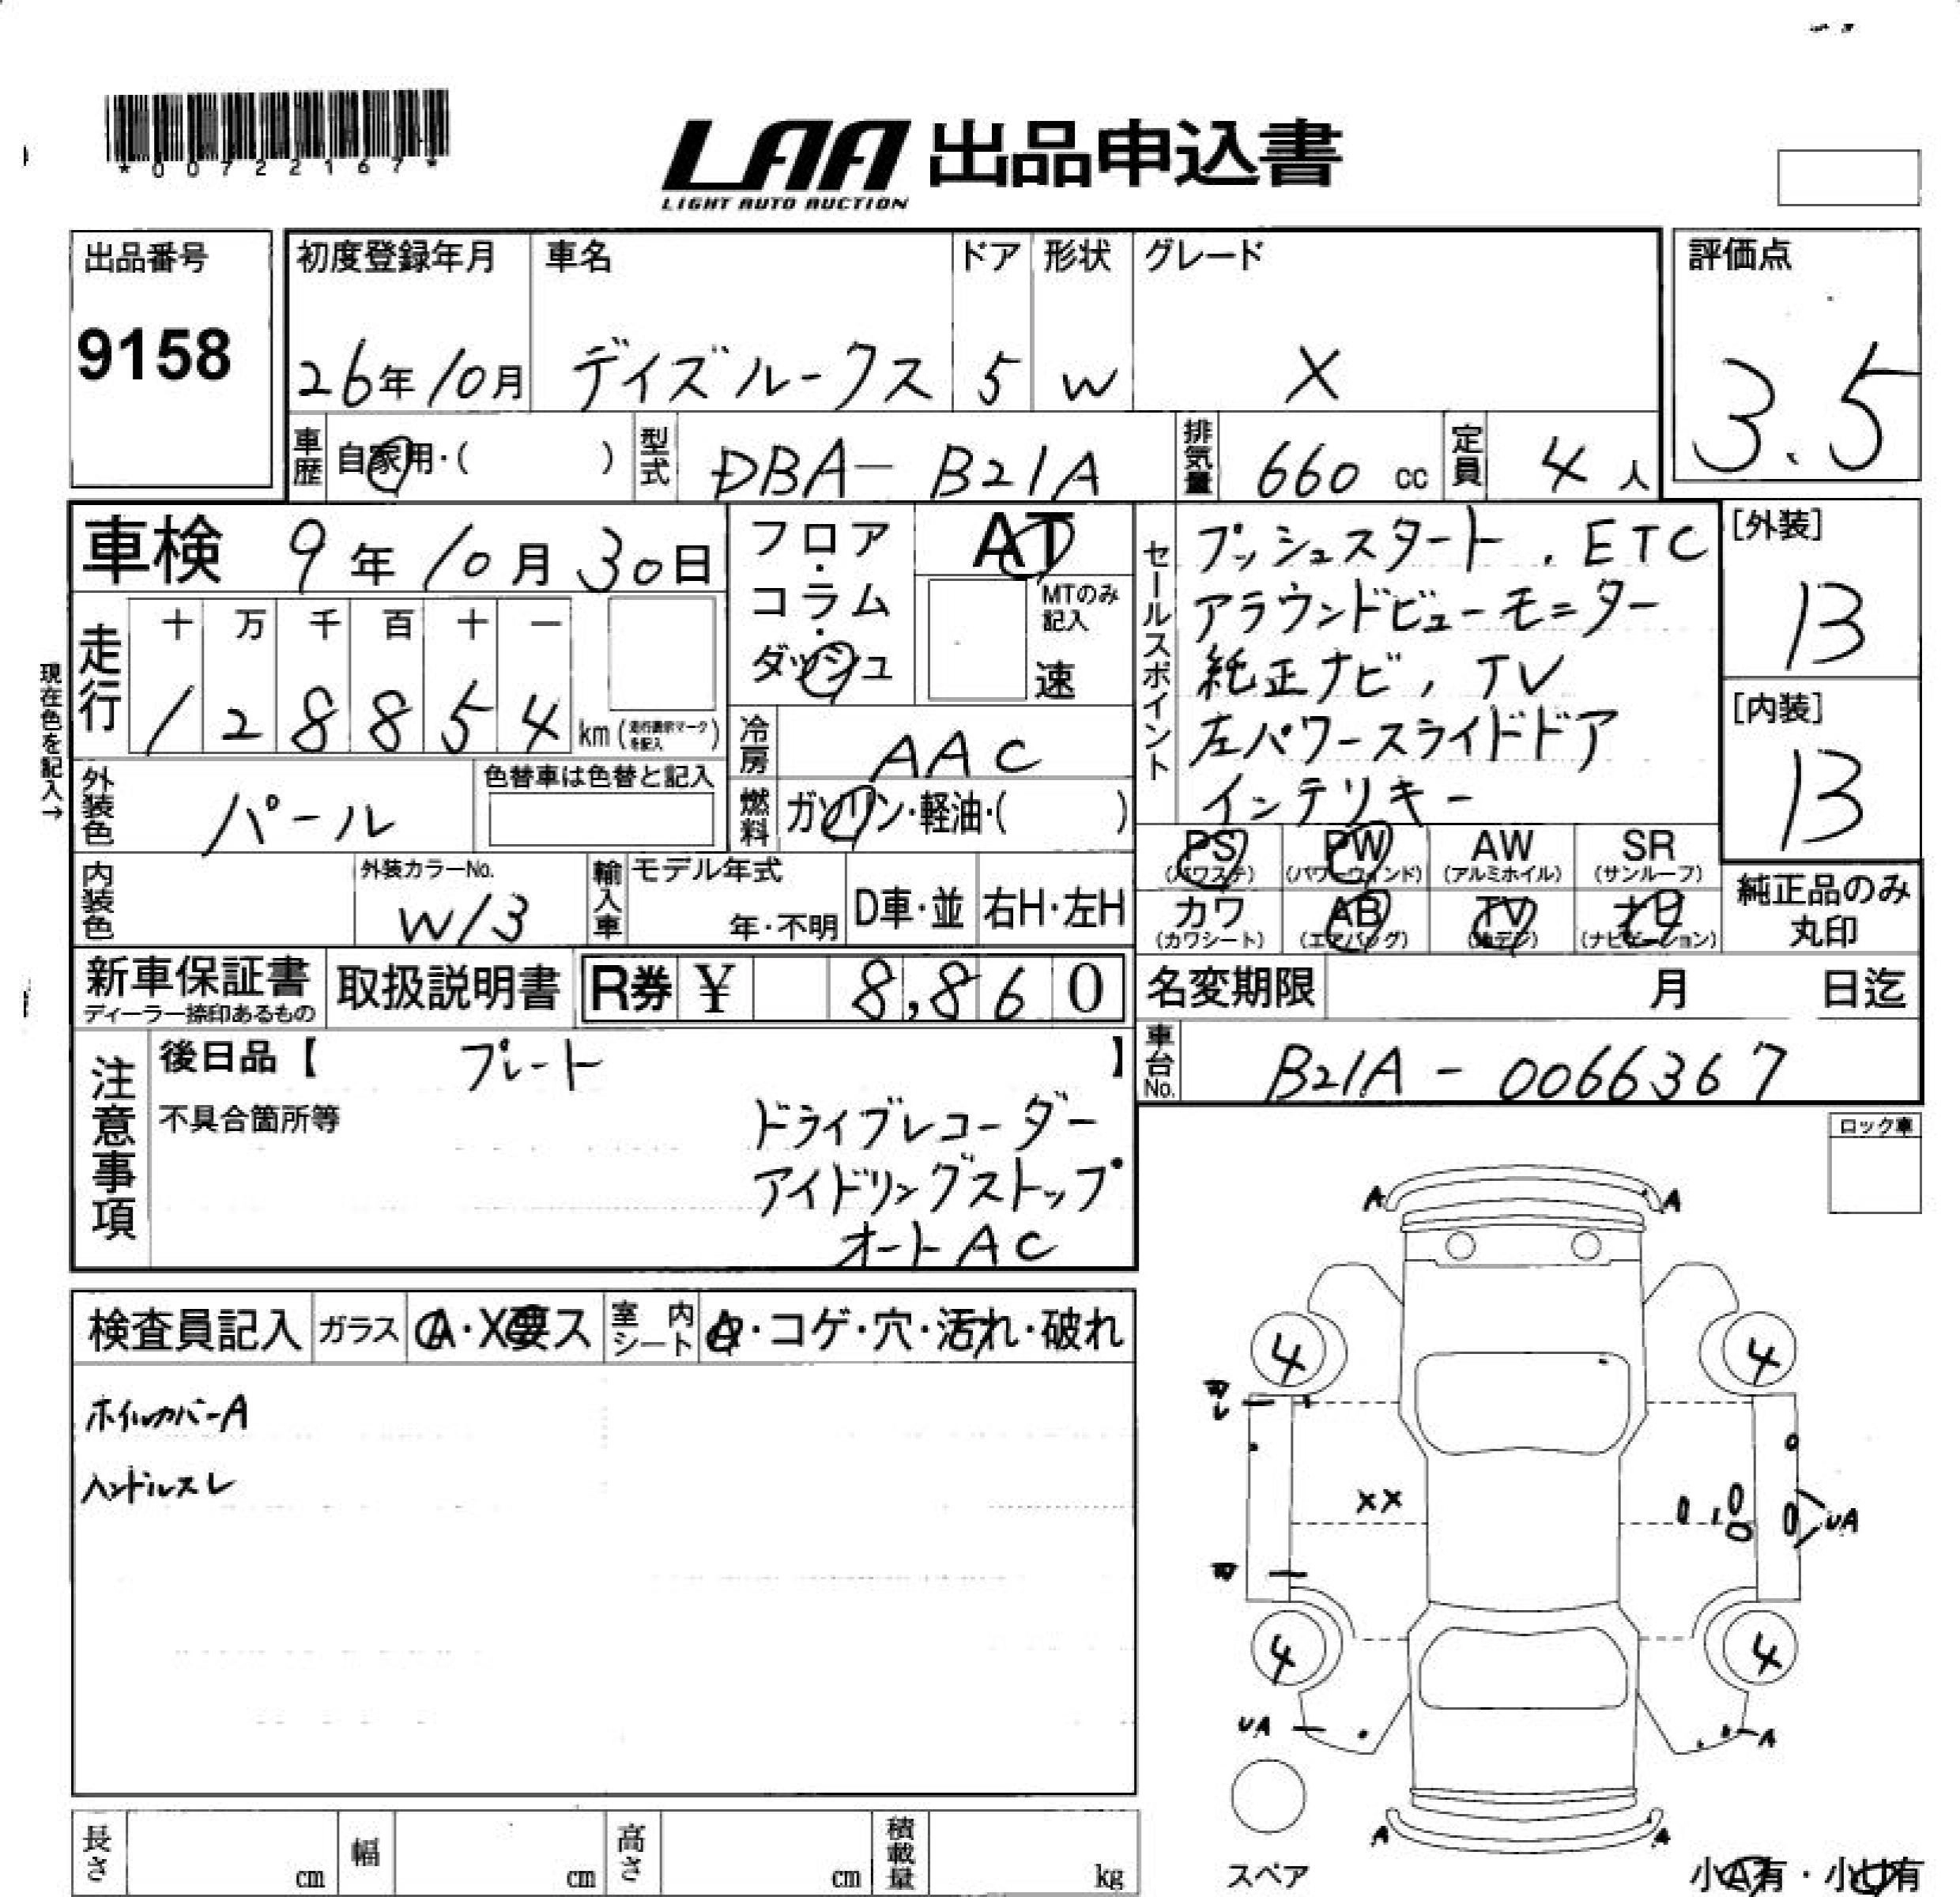 *00722167*
LAA 出品申込書
LIGHT AUTO AUCTION
出品番号
9158
初度登録年月
26年10月
車名
デイズルークス
ドア
5
形状
W
グレード
X
評価点
3.5
車歴 自家用・( )
型式 DBA-B21A
排気量 660cc
定員 4人
車検 9年10月30日
フロア・コラム・ダッシュ
AT
MTのみ記入
速
セールスポイント
プッシュスタート, ETC
アラウンドビューモニター
純正ナビ, TV
左パワースライドドア
インテリキー
[外装]
13
[内装]
13
現在色を記入→
走行
十 万 千 百 十 一
1 2 8 8 5 4 km
冷房 AAC
外装色 パール
色替車は色替と記入
燃料 ガソリン・軽油・( )
PS (パワステ)
PW (パワーウィンド)
AW (アルミホイル)
SR (サンルーフ)
カワ (カワシート)
AB (エアバッグ)
TV (地デジ)
ナビ (ナビゲーション)
純正品のみ丸印
内装色
外装カラーNo.
W13
輸入車
モデル年式
年・不明
D車・並
右H・左H
新車保証書
ディーラー捺印あるもの
取扱説明書
R券 ¥ 8,860
名変期限 月 日迄
車台No. B21A-0066367
注意事項
後日品【 プレート 】
不具合箇所等
ドライブレコーダー
アイドリングストップ
オートAC
ロック車
検査員記入
ガラス A・X要ス
室内シート A・コゲ・穴・汚れ・破れ
ホイルカバーA
ハンドルスレ
A A
4 4
XX
UA
4 4
UA A
A A
スペア
小A有・小U有
長さ cm
幅 cm
高さ cm
積載量 kg